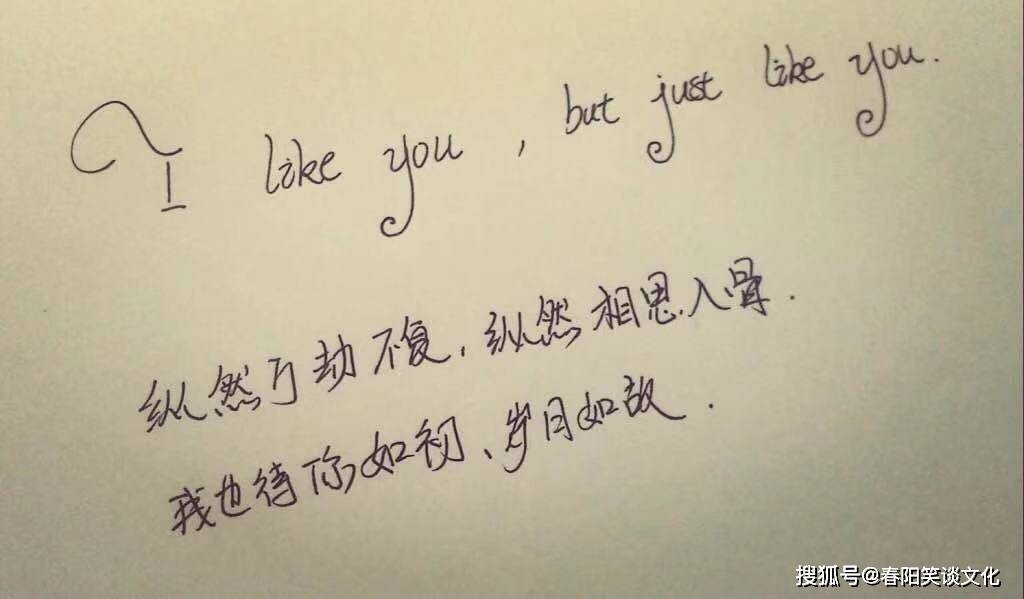 I like you, but just like you.
纵然万劫不复,纵然相思入骨.
我也待你如初、岁月如故.
搜狐号@春阳笑谈文化